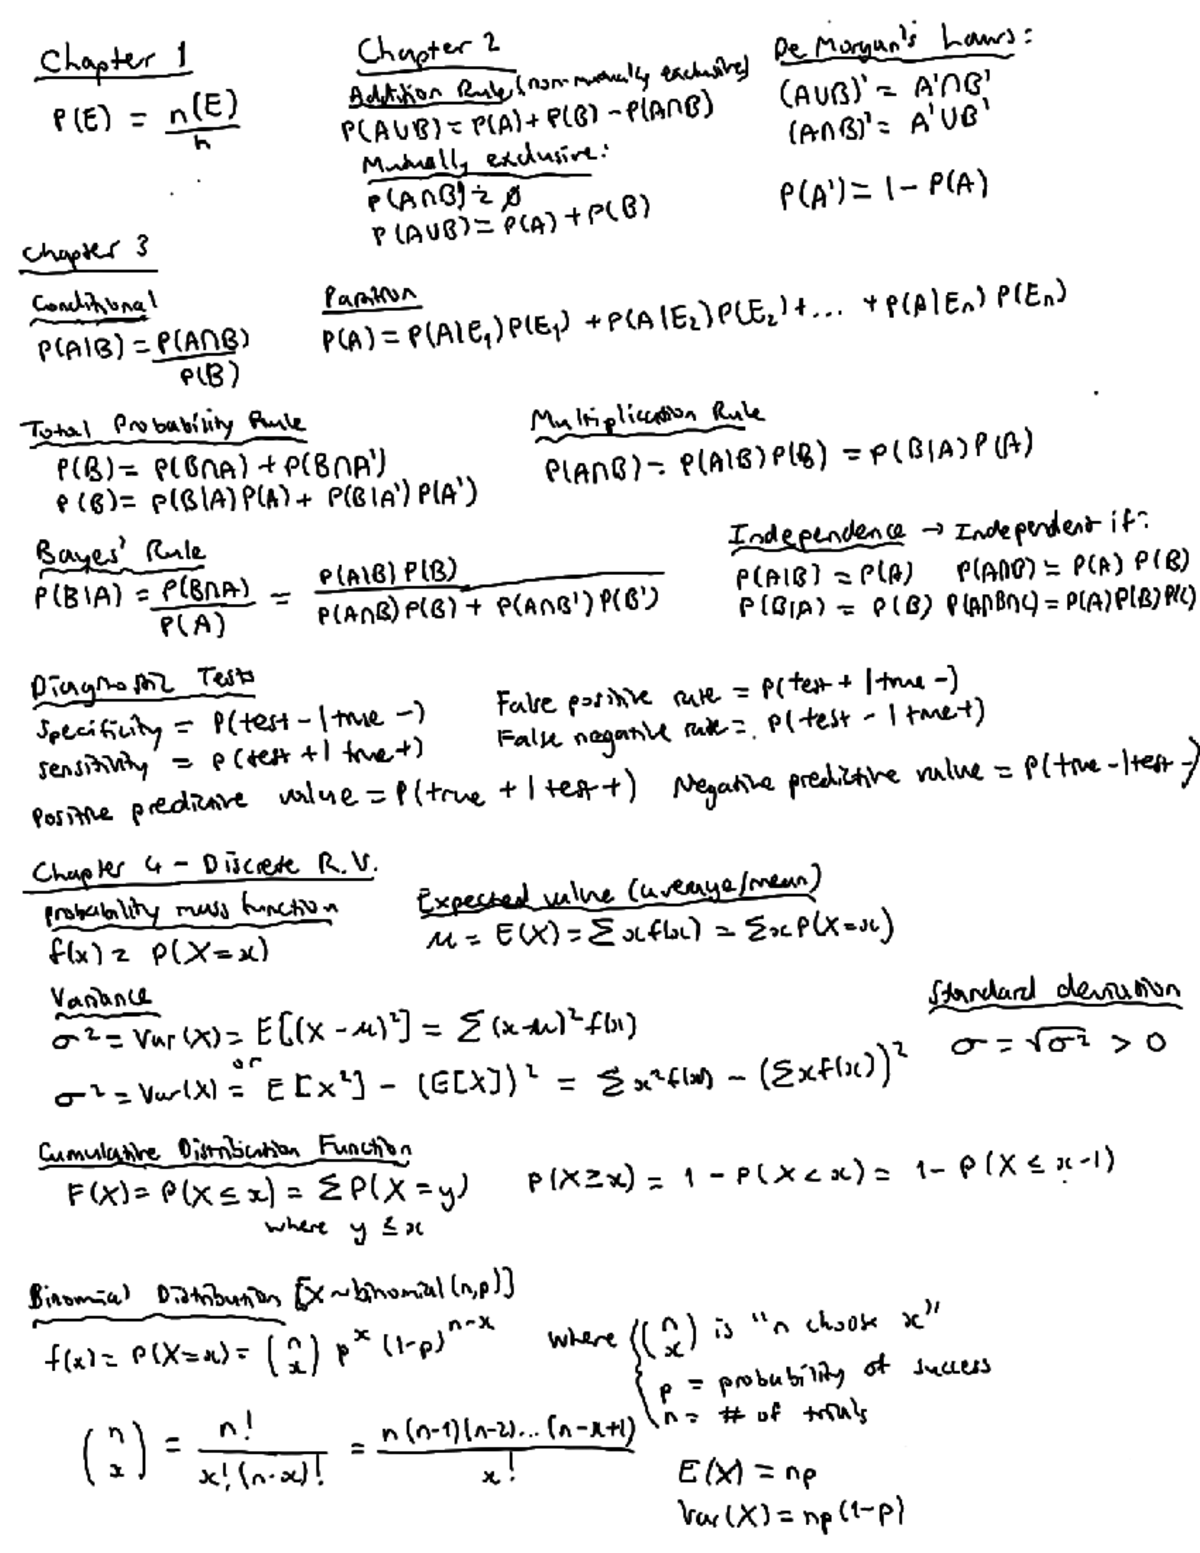 Chapter 1
P(E) = n(E)/n
Chapter 2
Addition Rule (non mutually exclusive)
P(A∪B) = P(A) + P(B) - P(A∩B)
Mutually exclusive:
P(A∩B) = ∅
P(A∪B) = P(A) + P(B)
De Morgan's Laws:
(A∪B)' = A'∩B'
(A∩B)' = A'∪B'
P(A') = 1 - P(A)
Chapter 3
Conditional
P(A|B) = P(A∩B)/P(B)
Partition
P(A) = P(A|E₁)P(E₁) + P(A|E₂)P(E₂) + ... + P(A|Eₙ)P(Eₙ)
Total Probability Rule
P(B) = P(B∩A) + P(B∩A')
P(B) = P(B|A)P(A) + P(B|A')P(A')
Multiplication Rule
P(A∩B) = P(A|B)P(B) = P(B|A)P(A)
Bayes' Rule
P(B|A) = P(B∩A)/P(A) = P(A|B)P(B)/P(A∩B)P(B) + P(A∩B')P(B')
Independence → Independent if:
P(A|B) = P(A) P(A∩B) = P(A) P(B)
P(B|A) = P(B) P(A∩B∩C) = P(A)P(B)P(C)
Diagnostic Tests
Specificity = P(test - | true -)
sensitivity = P(test + | true +)
False positive rate = P(test + | true -)
False negative rate = P(test - | true +)
Positive predictive value = P(true + | test +) Negative predictive value = P(true - | test -)
Chapter 4 - Discrete R.V.
probability mass function
f(x) = P(X=x)
Expected value (average/mean)
μ = E(X) = Σxf(x) = ΣxP(X=x)
Variance
σ² = Var(X) = E[(X-μ)²] = Σ(x-μ)²f(x)
or
σ² = Var(X) = E[X²] - (E[X])² = Σx²f(x) - (Σxf(x))²
Standard deviation
σ = √σ² > 0
Cumulative Distribution Function
F(X) = P(X ≤ x) = ΣP(X=y)
where y ≤ x
P(X≥x) = 1 - P(X<x) = 1 - P(X ≤ x-1)
Binomial Distribution [X~binomial(n,p)]
f(x) = P(X=x) = (n x) pˣ (1-p)ⁿ⁻ˣ
where (n x) is "n choose x"
p = probability of success
n = # of trials
(n x) = n!/x!(n-x)! = n(n-1)(n-2)...(n-x+1)/x!
E(X) = np
Var(X) = np(1-p)